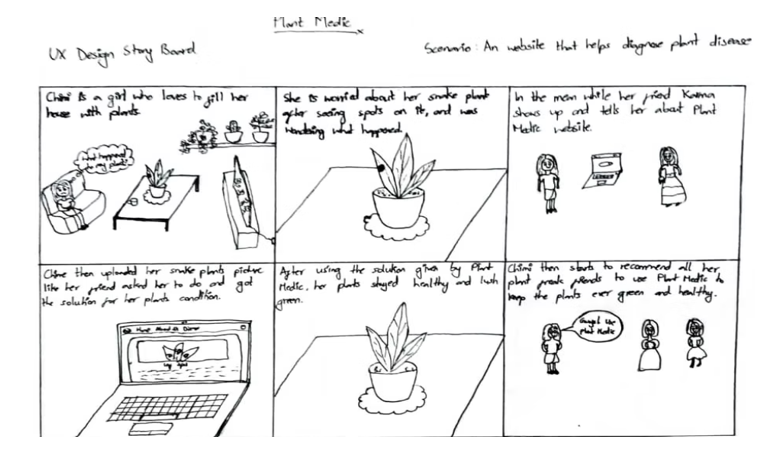 Plant Medic
UX Design Story Board
Scenario: An website that helps diagnose plant disease
Chimi is a girl who loves to fill her
house with plants.
what happened
to my plant?
She is worried about her snake plant
after seeing spots on it, and was
wondering what happened.
In the mean while her friend Karma
shows up and tells her about Plant
Medic website.
Chimi then uploaded her snake plants picture
like her friend asked her to do and got
the solution for her plants condition.
After using the solution given by Plant
Medic, her plants stayed healthy and lush
green.
Chimi then starts to recommend all her
plant freak friends to use Plant Medic to
keep the plants ever green and healthy.
Use
Plant Medic